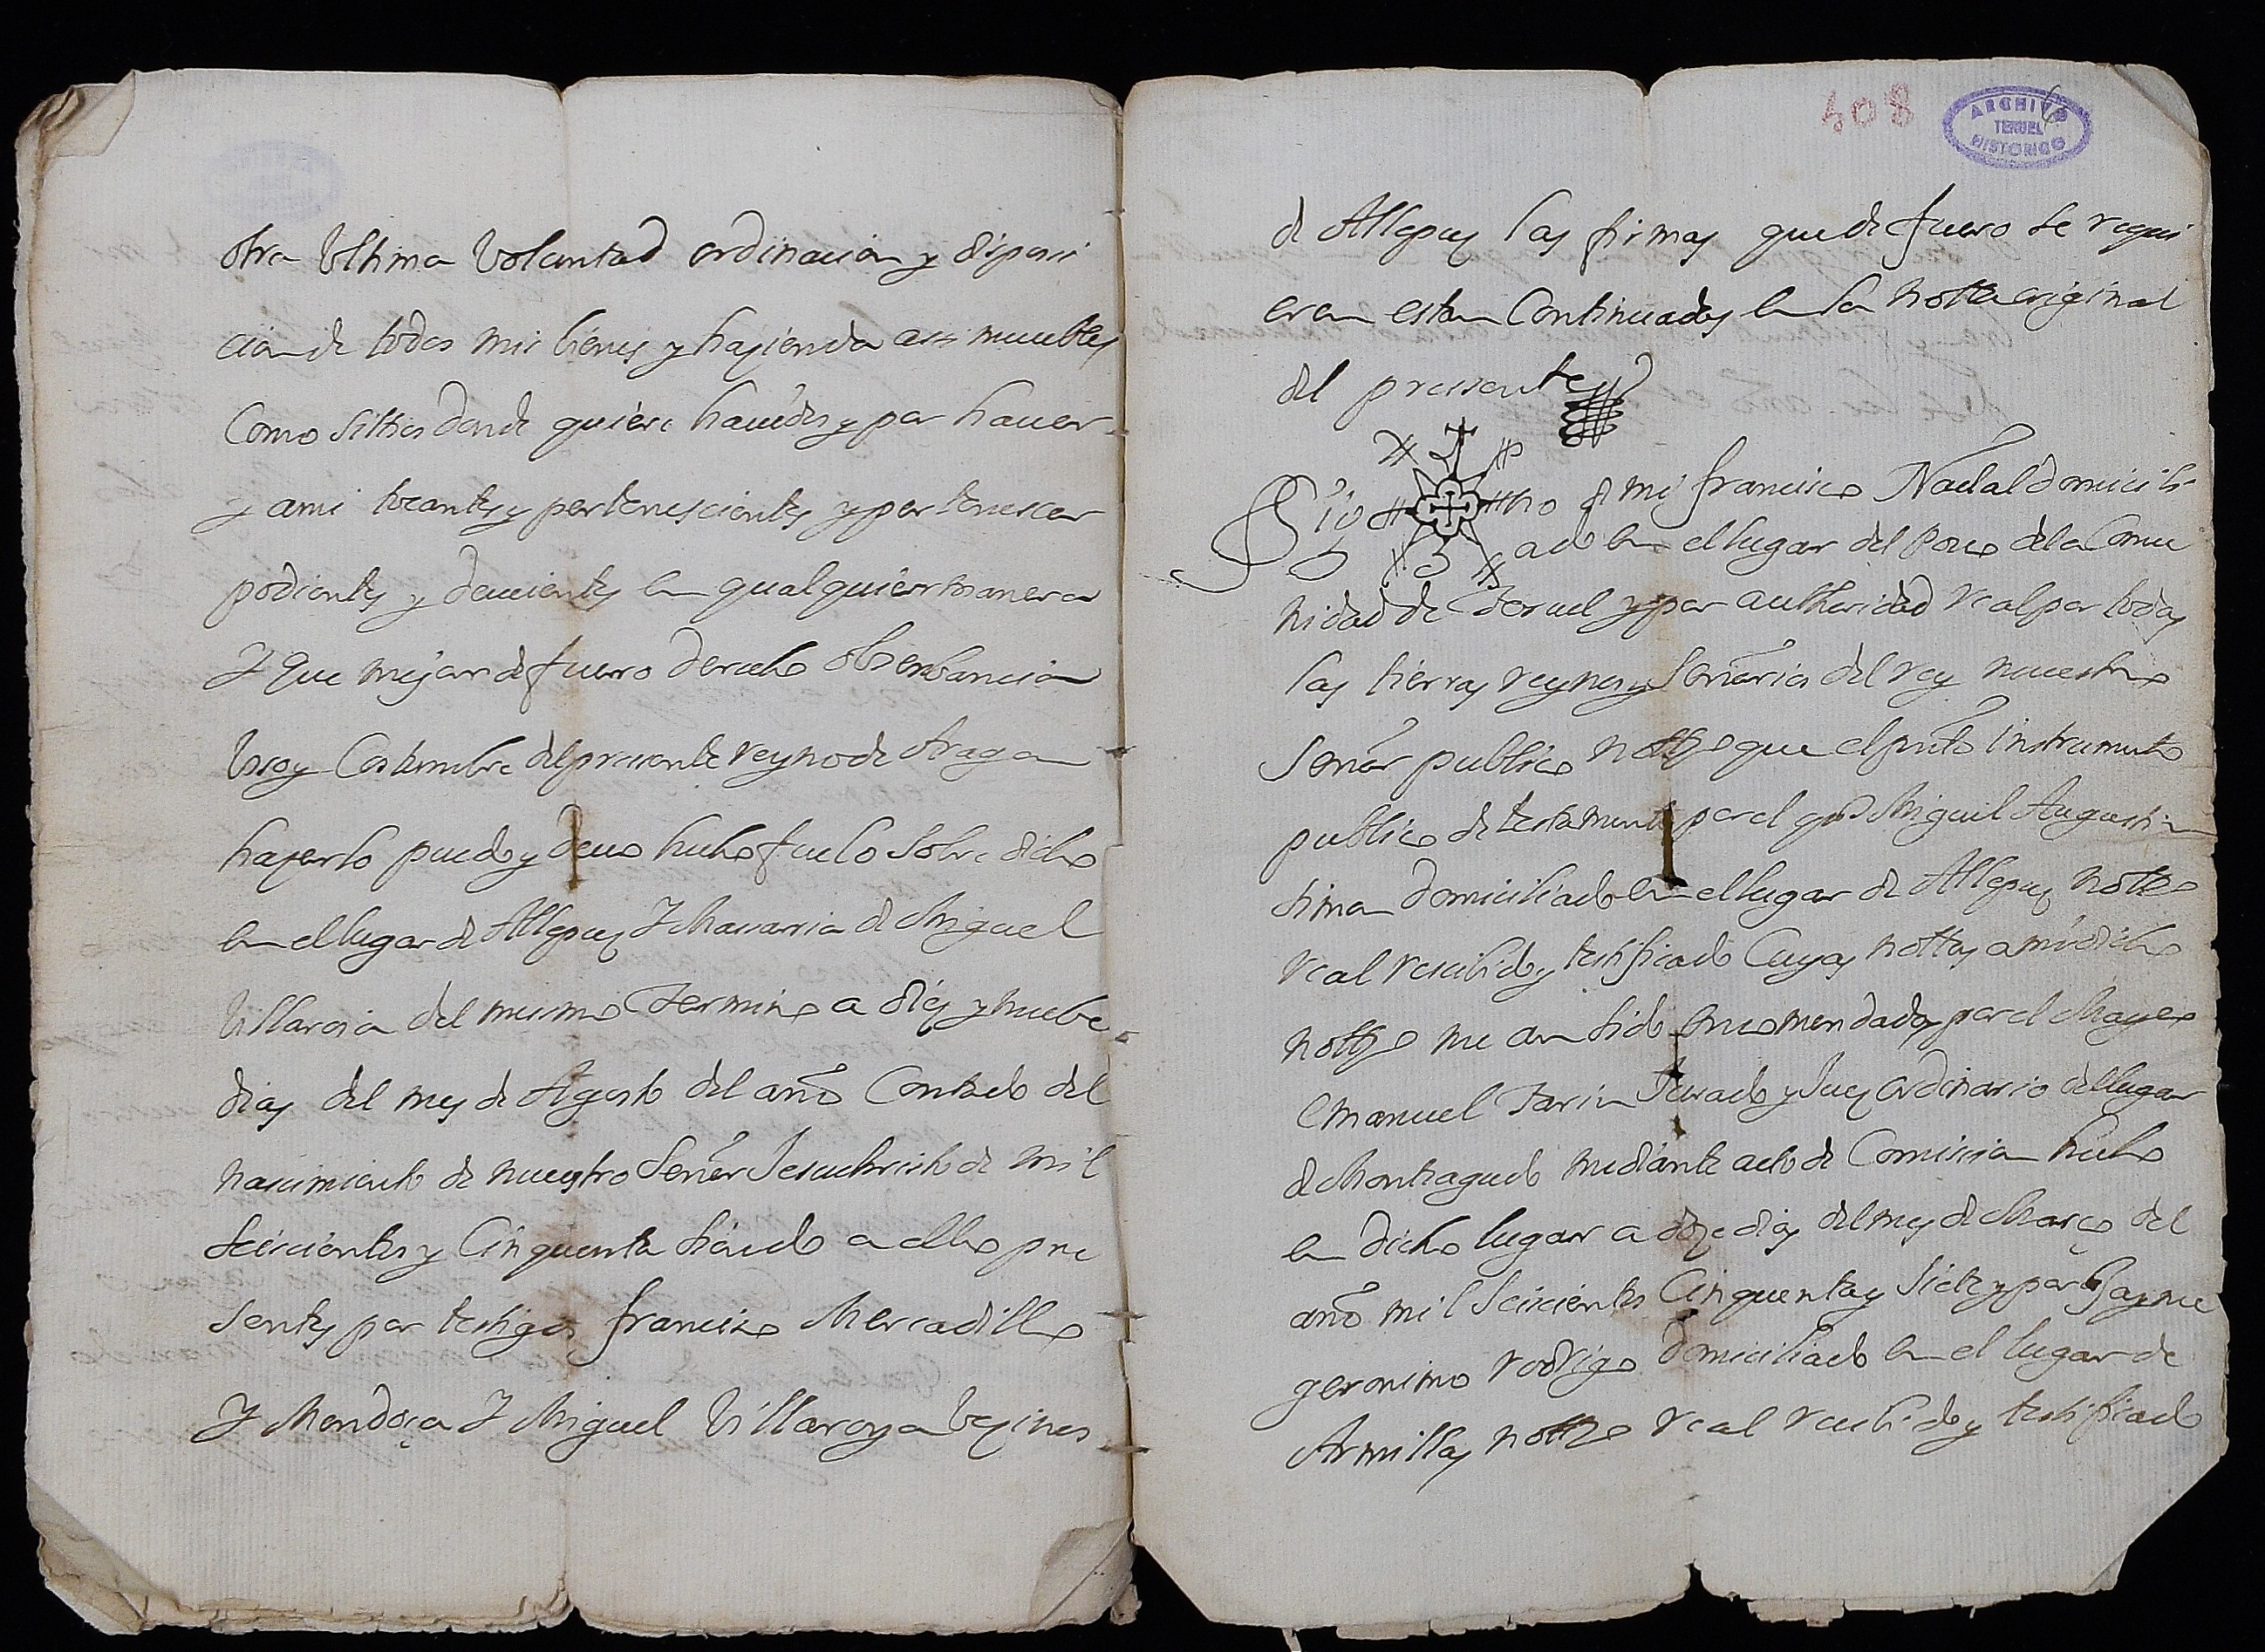 otra Ultima Voluntad ordinacion y disposi
cion de todos mis bienes y hazienda assi muebles
Como sittios donde quiere hauidos y por hauer
y a mi tocantes y pertenescientes y pertenescer
podientes y deuientes en qualquier manera
Y que mejor de fuero derecho obserbancia
Usso y Costumbre del presente reyno de Aragon
hazerlo puedo y deuo hecho fue lo sobre dicho
en el lugar de Allepuz Y Massaria de Miguel
Villaroia del mesmo Termino a diez y nuebe
dias del mes de Agosto del año Contado del
nascimiento de nuestro Señor Jesuchristo de mil
Seiscientos y Cinquenta siendo a ello pre
sentes por testigos francisco Mercadillo
Y Mendoça Y Miguel Villaroya Vezinos
408
6
ARCHIVO
TERUEL
HISTORICO
de Allepuz las firmas que de fuero se requi
eren estan Continuadas en la notta original
del pressente
Sig no de mi francisco Nadal domicili
ado en el lugar del Pouo de la Comu
nidad de Teruel y por authoridad real por todas
las tierras reynos y Señorios del rey nuestro
Señor publico notto que el pnto instrumento
publico de testamento por el qo Miguel Augustin
Simon domiciliado en el lugar de Allepuz notto
real rescibido y testificado Cuyas nottas a mi dicho
notto me an sido encomendadas por el Mage
Emanuel Tarin Jurado y Juez ordinario del lugar
de Monteagudo mediante acto de Comission hecho
en dicho lugar a doze dias del mes de Março del
año mil Seiscientos Cinquenta y Siete y por Jayme
geronimo rodrigo domiciliado en el lugar de
Armillas notto real rescibido y testificado